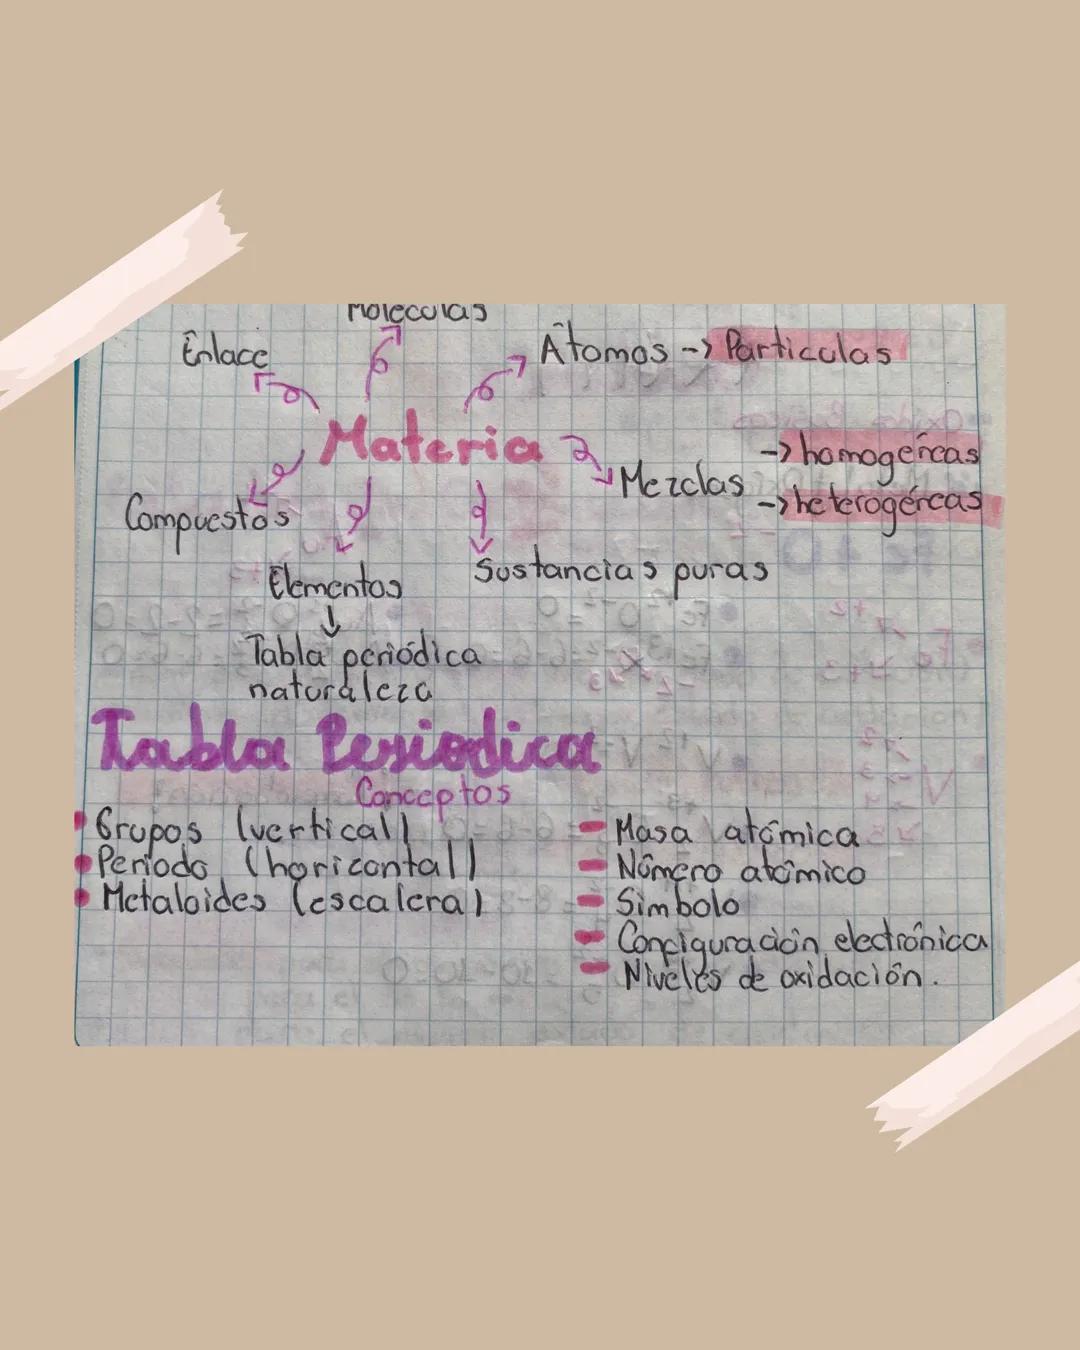 Moleculas
Enlace
Átomos -> Particulas
Materia
-> homogéneas
Mezclas
-> heterogéneas
Compuestos
Sustancias puras
Elementos
↓
Tabla periódica
naturaleza
Tabla Periodica
Conceptos
Grupos (vertical)
Periodo (horizontal)
Metaloides (escalera)
Masa atómica
Número atómico
Simbolo
Configuración electrónica
Niveles de oxidación.